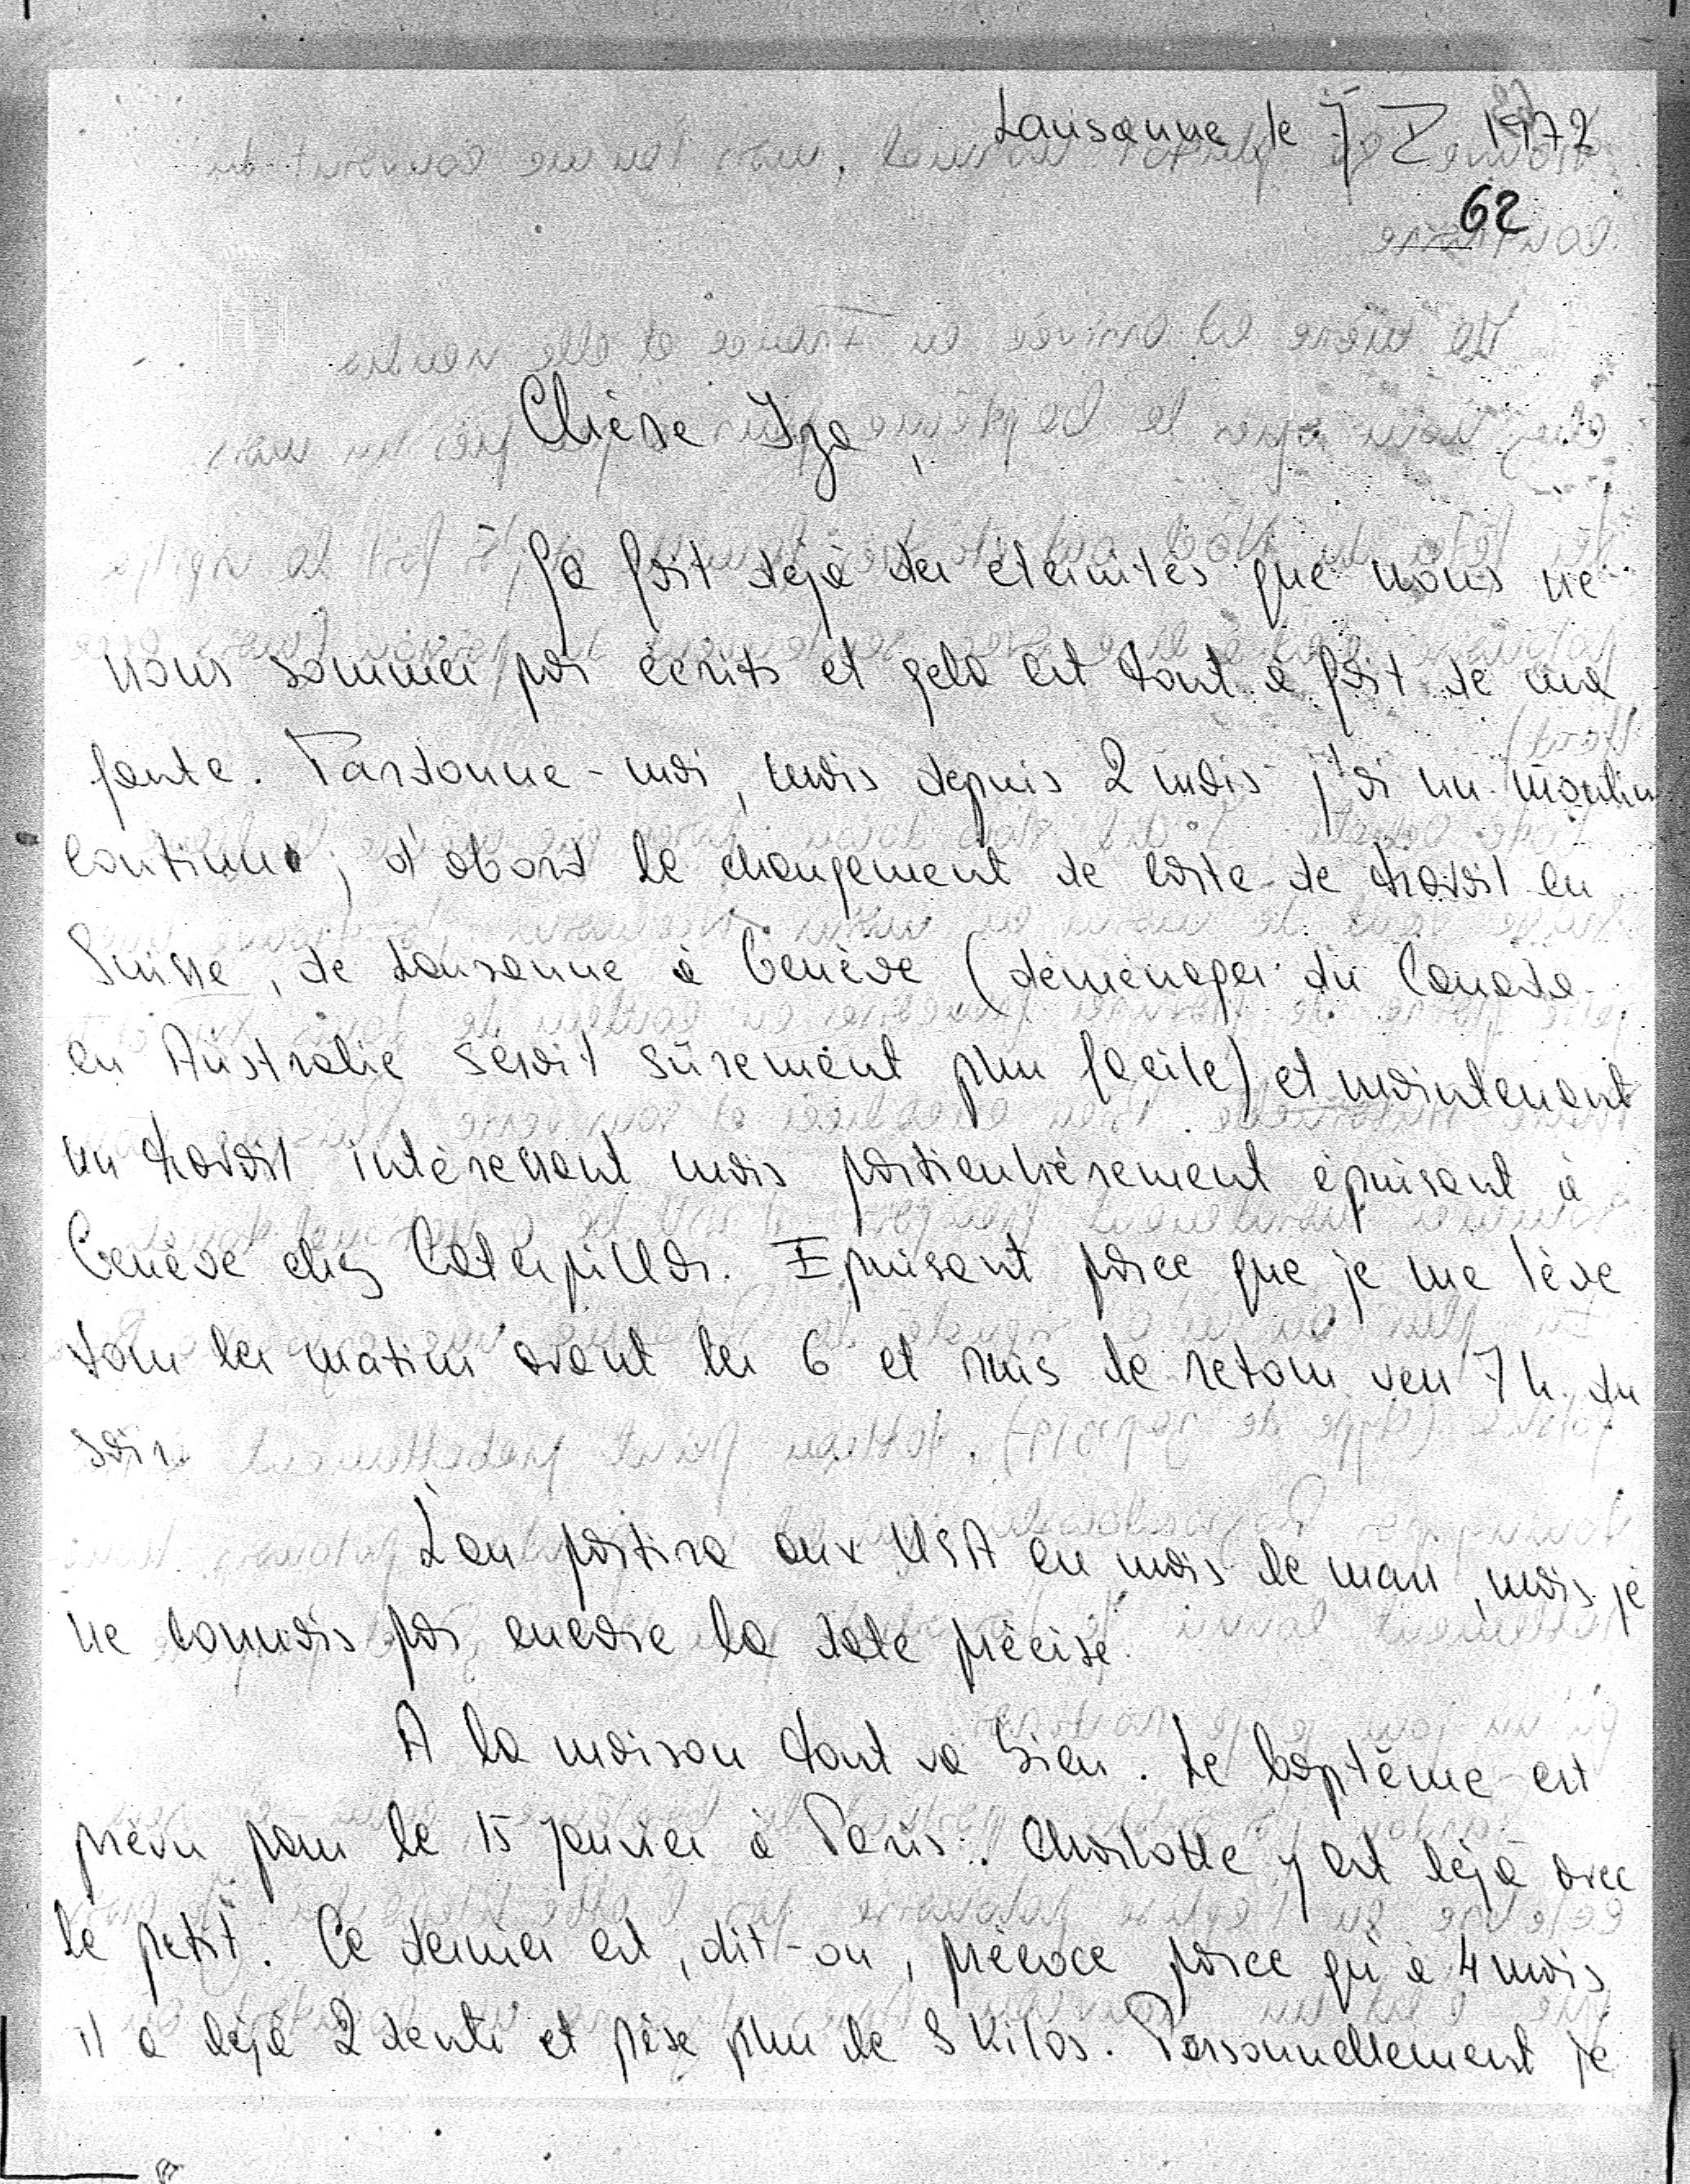 Lausanne le 7 I 1972
62
Chère Iza,
Ça fait déjà des éternités que nous ne
nous sommes pas écrits et cela est tout à fait de ma
faute. Pardonne-moi, mais depuis 2 mois j'ai un moulin
continu; d'abord le changement de de travail en
Suisse, de Lausanne à Genève (déménager du Canada
en Australie serait sûrement plus facile) et maintenant
un travail intéressant mais particulièrement épuisant à
Genève chez Caterpillar. Epuisant parce que je me lève
tous les matins avant les 6 et suis de retour vers 7 h. du
soir.
L'on partira aux USA en mois de mars, mais je
ne connais pas encore la date précise.
A la maison tout va bien. Le baptême est
prévu pour le 15 janvier à Paris. Charlotte y est déjà avec
le petit. Ce dernier est, dit-on, précoce parce qu'à 4 mois
il a déjà 2 dents et pèse plus de kilos. Personnellement je